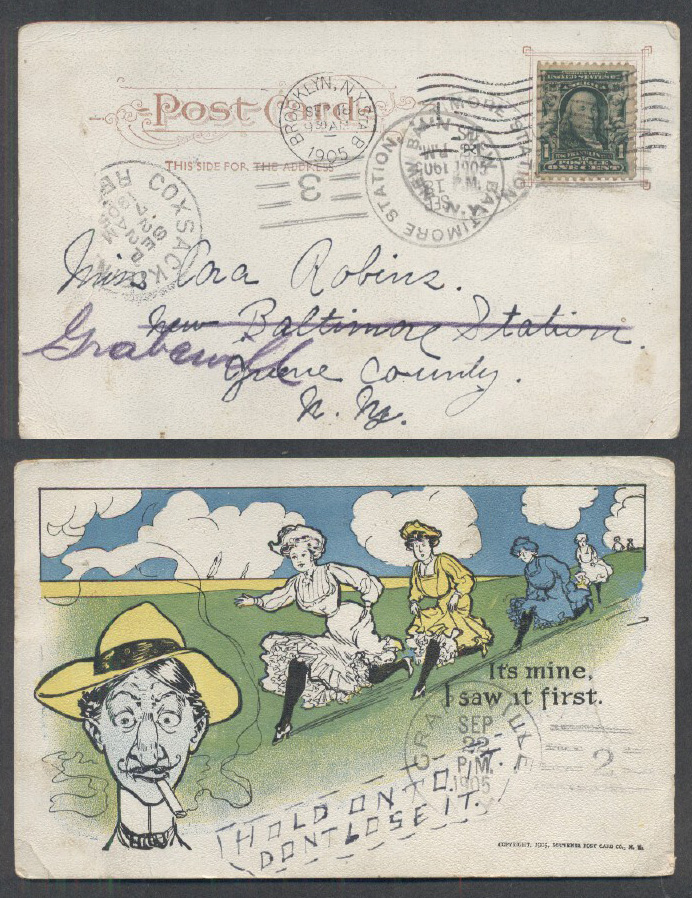 Post Card.
THIS SIDE FOR THE ADDRESS
BROOKLYN, N.Y.
9 30 AM
1905
B
3
UNITED STATES
POSTAGE
ONE CENT
NEW BALTIMORE STATION
SEP
18
P.M.
1905
COXSACK
SEP
22
AM
Miss Cora Robins.
New Baltimore Station.
Greene County.
N. Y.
It's mine,
I saw it first.
SEP
22
P.M.
1905
2
HOLD ON TO IT.
DONT LOSE IT.
COPYRIGHT, 1905, SOUVENIR POST CARD CO., N. Y.